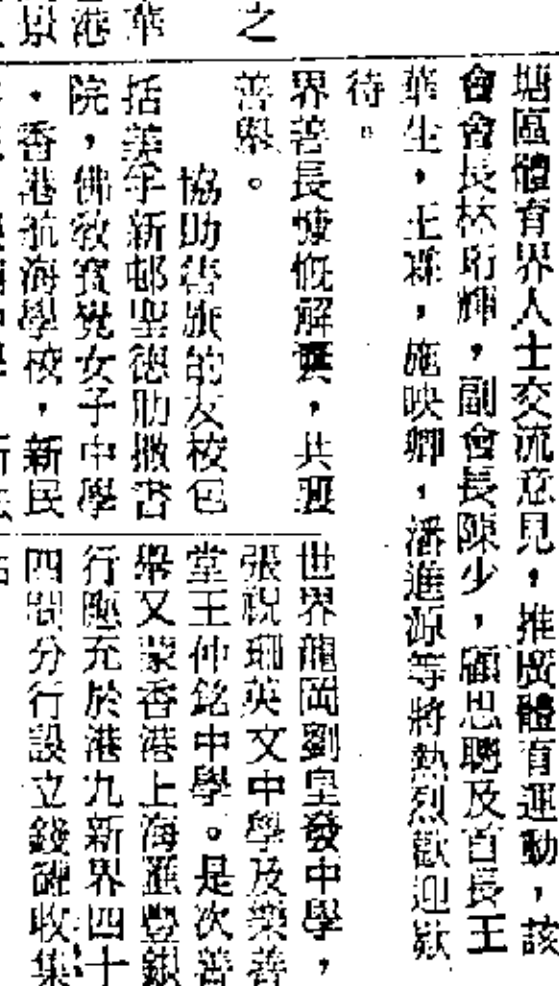 塘區體育界人士交流意見，推廣體育運動，該
會會長林珩輝，副會長陳少，顧思聰及首長王
華生，王霖，施映卿，潘進源等將熱烈歡迎欵
待。
之
華
港
景
界善長慷慨解囊，共襄
善舉。
協助售旗的友校包
括美孚新邨聖德肋撒書
院，佛教寶覺女子中學
，香港航海學校，新民
世界龍岡劉皇發中學，
張祝珊英文中學及樂善
堂王仲銘中學。是次善
舉又蒙香港上海滙豐銀
行應允於港九新界四十
四間分行設立錢罌收集